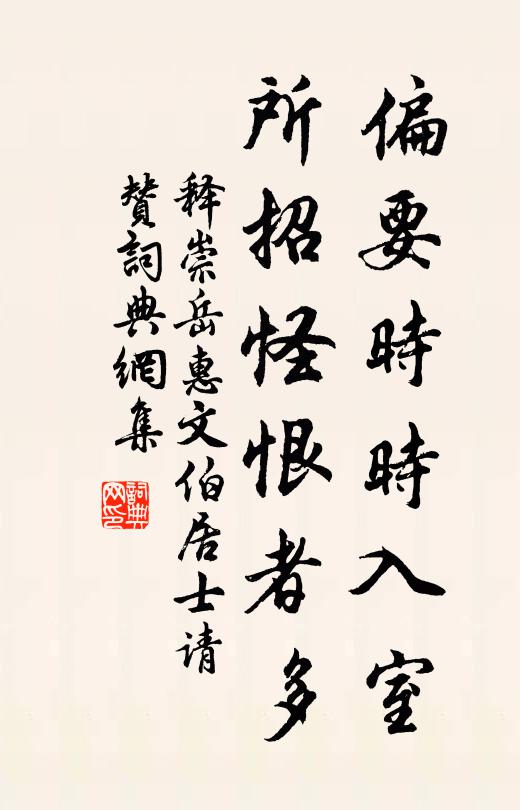 偏要時時入室
所招怪恨者多
释崇岳惠文伯居士请
赞詞典網集
詞典
网印